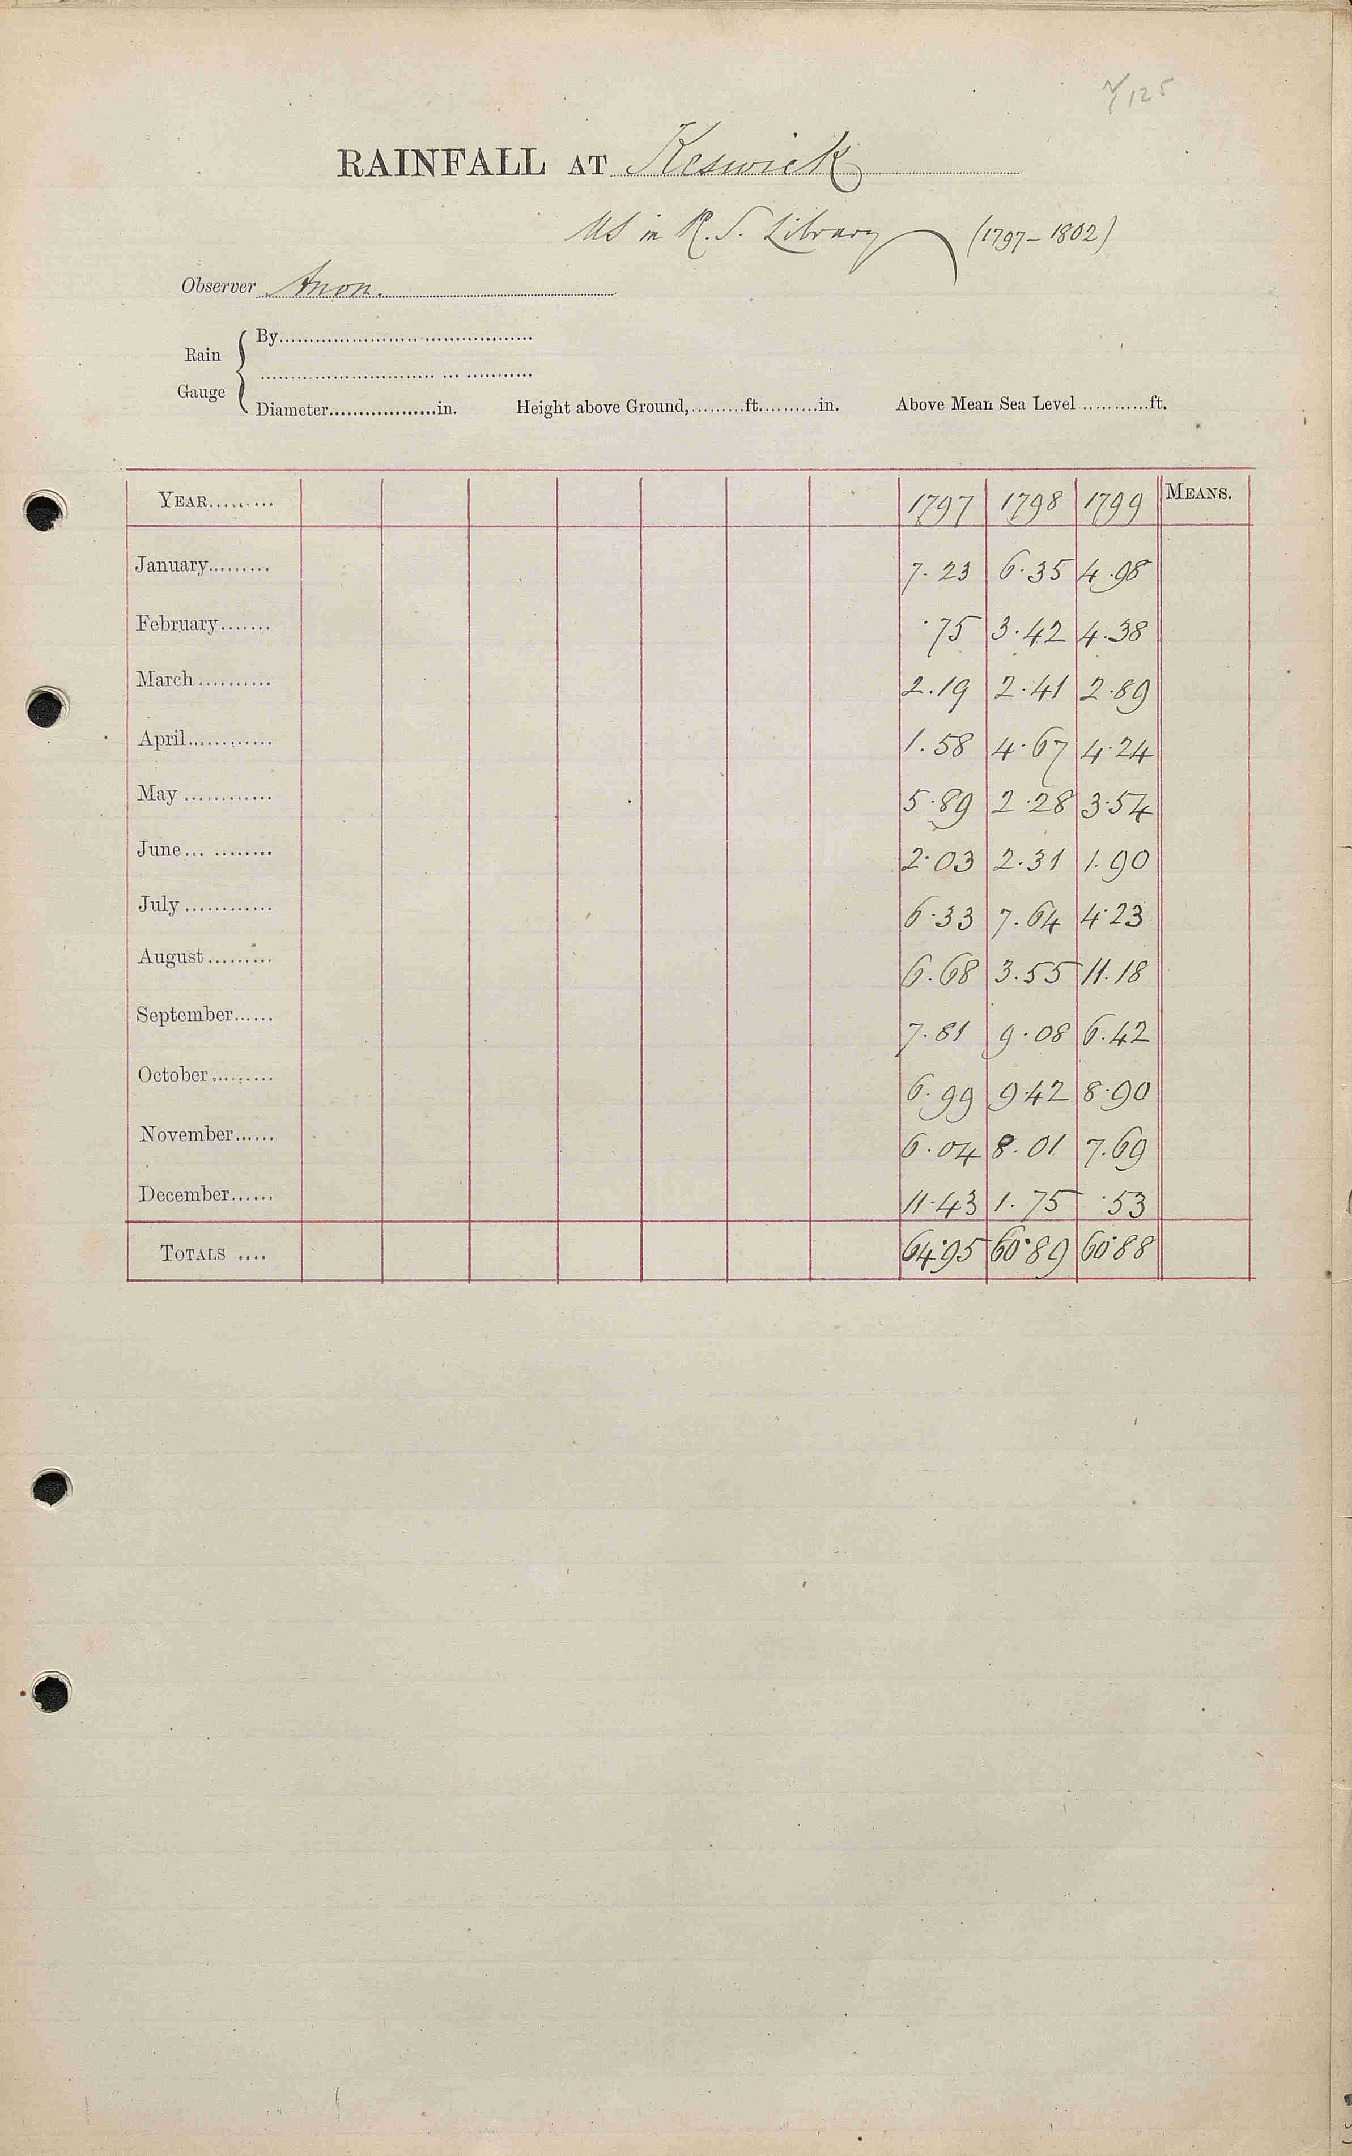 7/125
RAINFALL AT Keswick
MS in R.S. Library (1797-1802)
Observer Anon.
Rain Gauge
By
Diameter in. Height above Ground, ft. in. Above Mean Sea Level ft.
YEAR 1797 1798 1799 MEANS.
January 7.23 6.35 4.98
February .75 3.42 4.38
March 2.19 2.41 2.89
April 1.58 4.67 4.24
May 5.89 2.28 3.54
June 2.03 2.31 1.90
July 6.33 7.64 4.23
August 6.68 3.55 11.18
September 7.81 9.08 6.42
October 6.99 9.42 8.90
November 6.04 8.01 7.69
December 11.43 1.75 .53
TOTALS 64.95 60.89 60.88